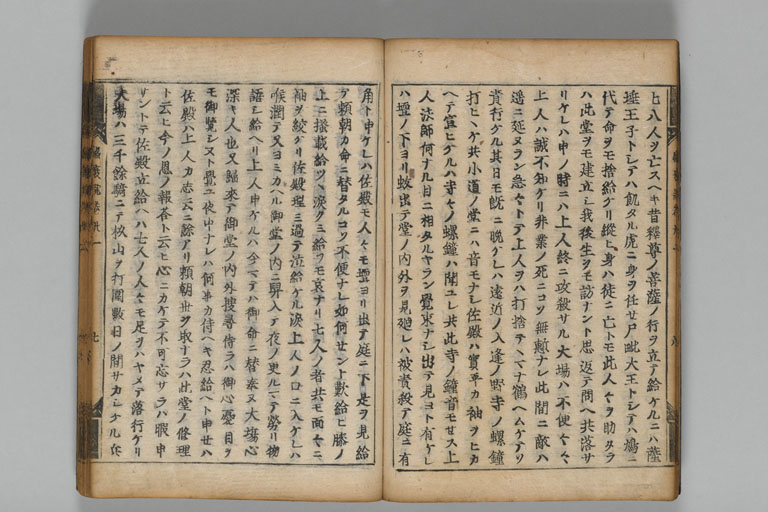 七八人ヲ亡スヘキ昔釋尊ノ菩薩ノ行ヲ立テ給ケルニハ薩
埵王子トシテハ飢タル虎ニ身ヲ任セ尸毗大王トシテハ鳩ニ
代テ命ヲモ捨給ケリ縦ヒ身ハ徒ニ亡トモ此人々ヲ助タラ
ハ此堂ヲモ建立シ我後生ヲモ訪ナント思返テ問ヘ共落サ
リケレハ申ノ時ニハ上人終ニ攻殺サル大場ハ不便々々
上人ハ誠不知ケリ非業ノ死ニコソ無慙ナレ此間ニ敵ハ
遥ニ延ヌラン急々トテ上人ヲハ打捨テ
責行ケル其日モ既ニ晩ケレハ遠近ノ入逢ノ野寺ノ螺鐘
打ヒヾケ共小道ノ堂ニハ音モナシ佐殿ハ實平カ袖ヲヒカ
ヘテ宣ヒケルハ寺々ノ螺鐘ハ聞ユレ共此寺ノ鐘音モセス上
人法師何ナル目ニ相タルヤラン覺束ナシ出テ見ヨト有ケレ
ハ壇ノ下ヨリ蚑出テ堂ノ内外ヲ見廻レハ被責殺テ庭ニ有
角ト申ケレハ佐殿モ人々モ壇ヨリ出テ庭ニ下是ヲ見給
テ頼朝カ命ニ替タルコソ不便ナレ如何セント歎給ヒ膝ノ
上ニ掻載給ツヽ涙クミ給フモ哀ナリ七人ノ者共モ面々ニ
袖ヲ絞ケリ佐殿理ニ過テ泣給ケル涙上人ノ口ニ入ケレハ
喉潤テ又ヨミカヘル御堂ノ内ニ舁入テ夜ノ更ルマテ勞リ物
語シ給ヘリ上人申ケルハ今マテハ御命ニ替奉ヌ大場心
深キ人也又歸來テ御堂ノ内外捜尋侍ラハ御心憂目ヲ
モ御覽シヌト覺ユ夜中ナレハ何事カ侍ヘキ忍給ヘト申セハ
佐殿ハ上人カ志云ニ餘アリ頼朝世ヲ取ナラハ此堂ノ修理
ト云ヒ今ノ恩ノ報荅ト云ヒ心ニカケテ不可忘サラハ暇申
サントテ佐殿立給ヘハ七人ノ人々モ足ヲハヤメテ落行ケリ
大場ハ三千餘騎ニテ杦山ヲ打圍數日ノ間サカシケル